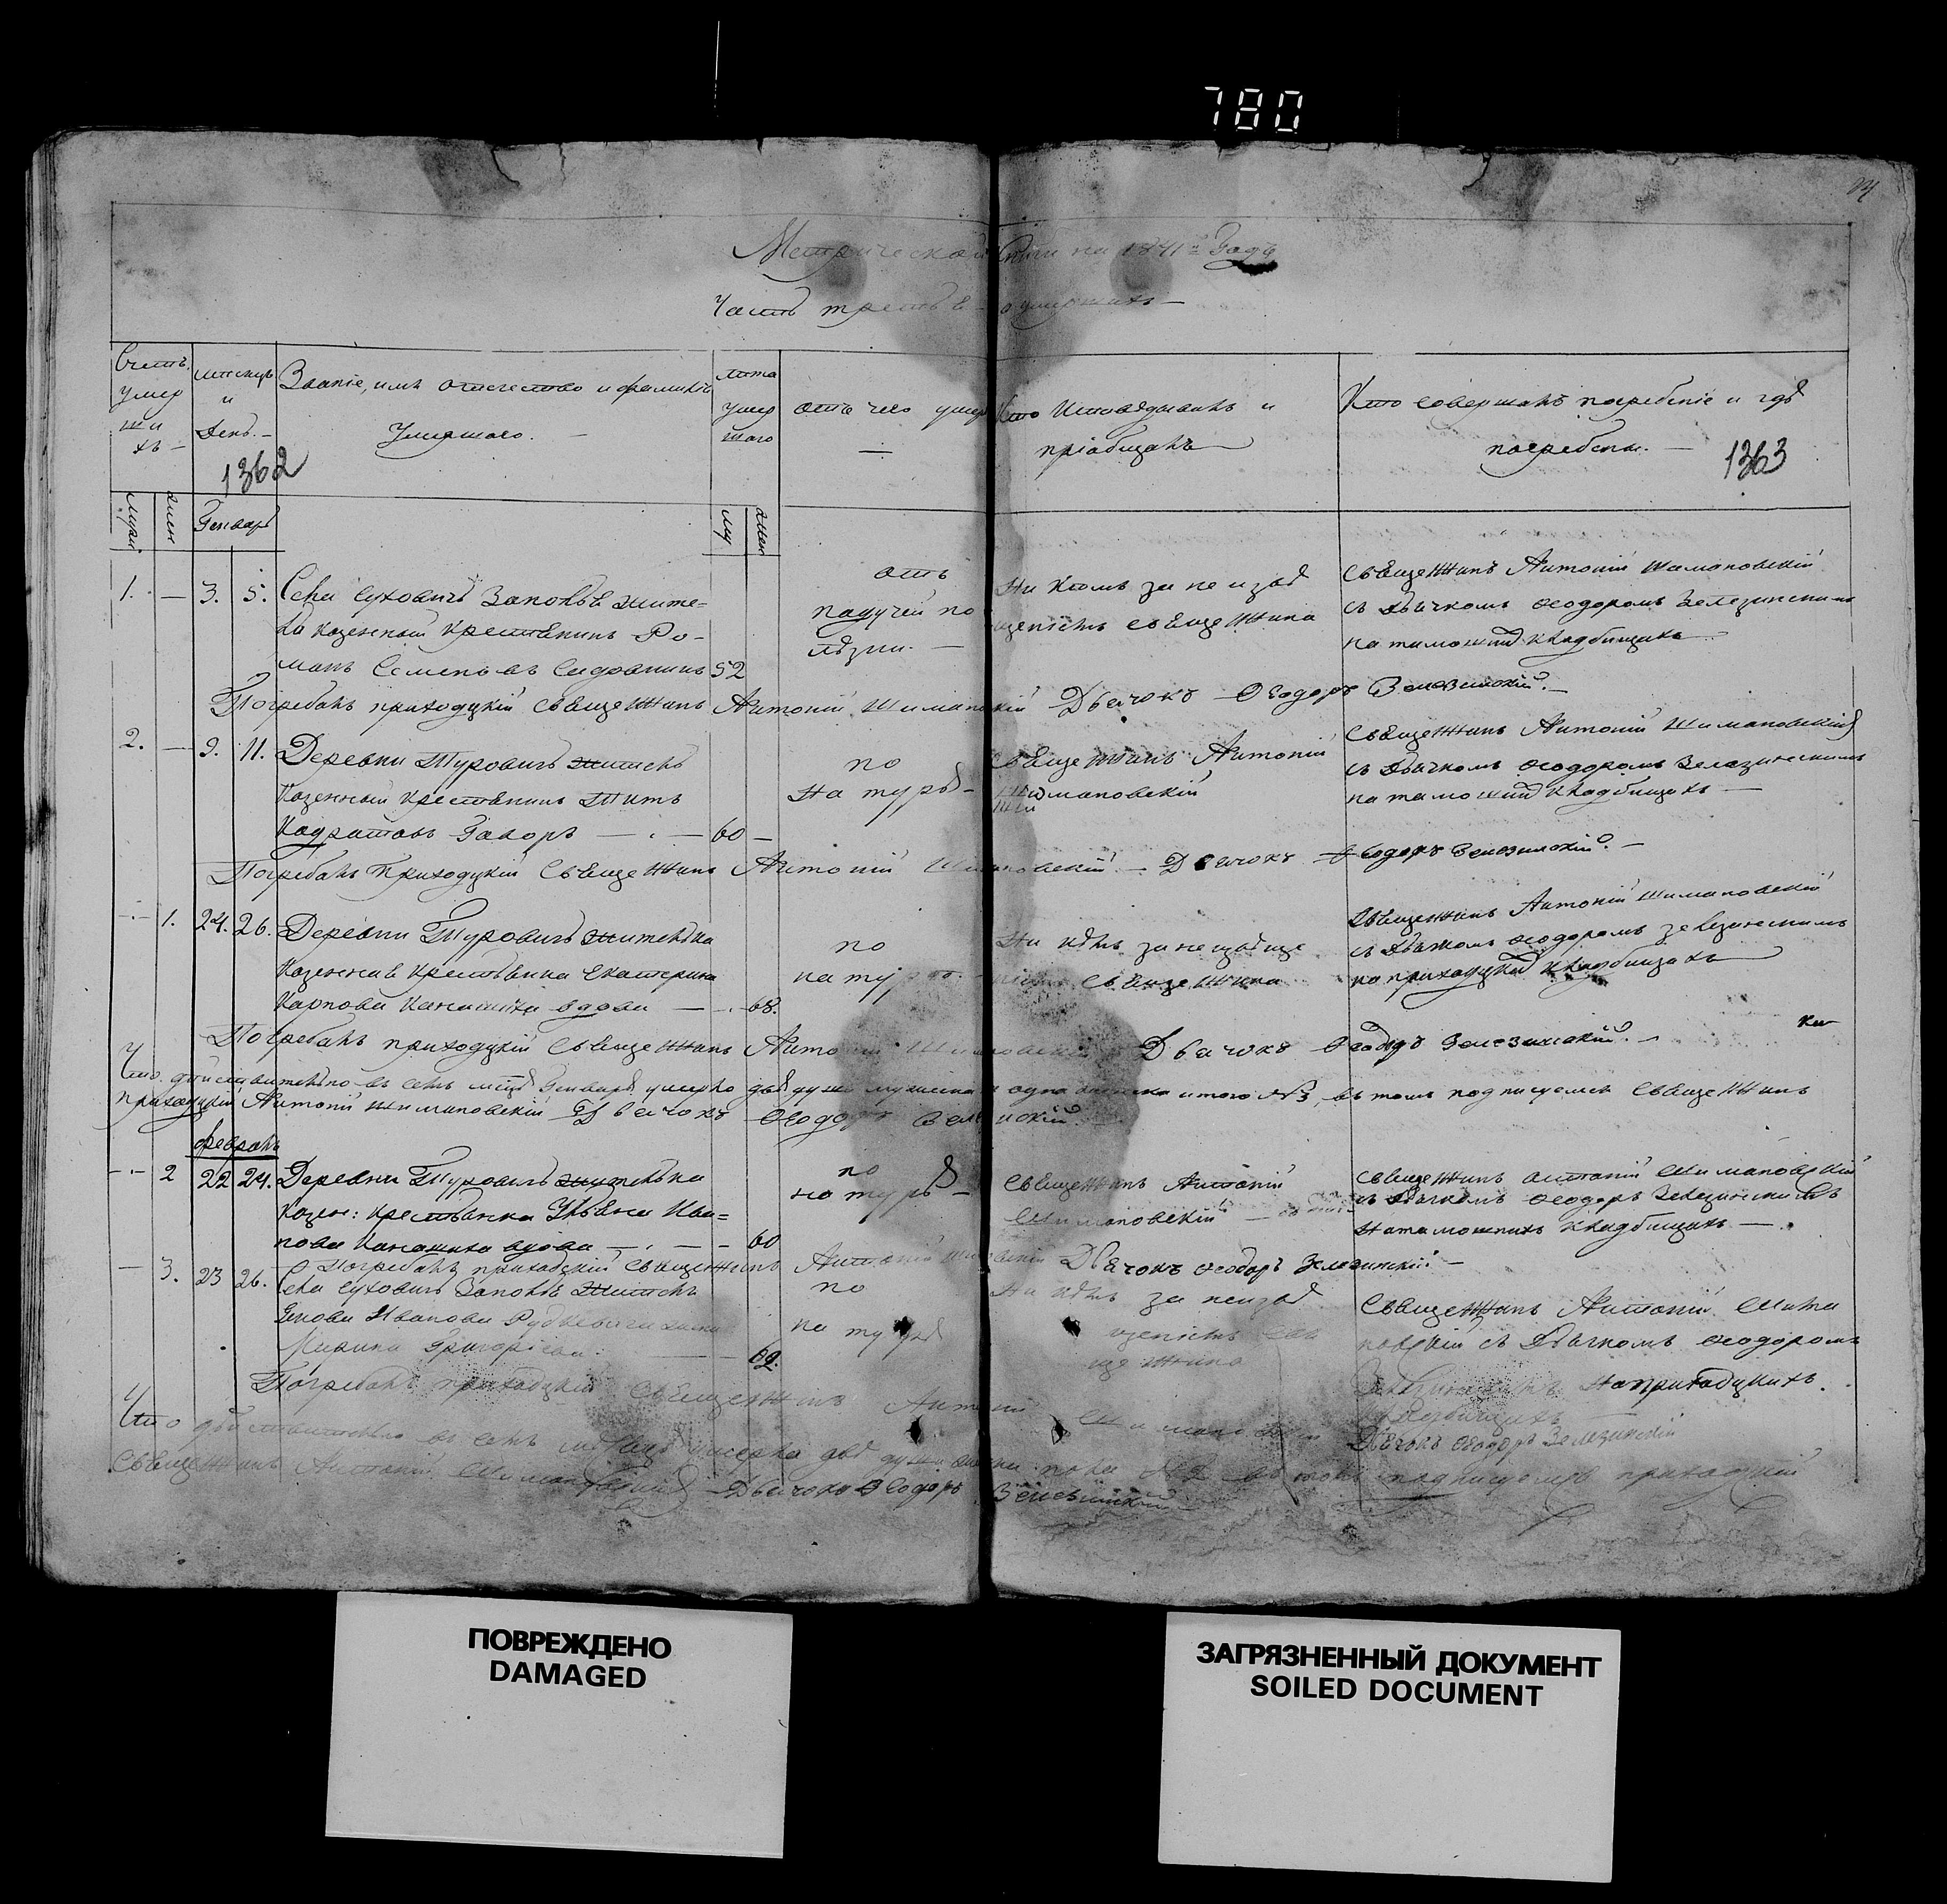 780
Метрической Книги на 1841 Годъ
Часть третья о умершихъ —
Счетъ умер ши хъ —
Месецъ и День. —
Званіе, имя отечество и фамилія Умершаго. —
лета умер шаго
отъ чего умер —
Кто Исповѣдывалъ и пріобщалъ
Кто совершалъ погребеніе и гдѣ погребены. —
1362
1363
муж.
жен
Генварь
му
жен
1. — 3. 5.
Села Суховичъ Заполья жите=
ль казенный крестьянинъ Ро-
манъ Семеновъ 52
отъ
падучей по
лѣзни. —
Ни кемъ за не изве
щеніемъ священника
Священникъ Антоній Шимановскій
съ Дьячкомъ Феодоромъ Зелезинскимъ
на тамошнем кладбищахъ
Погребалъ приходцкій Священникъ Антоній Шимановскій Дьячокъ Феодоръ Зелезинскій. —
2. — 9. 11.
Деревни Туровичъ житель
Казенный крестьянинъ Титъ
60 —
по
Натурѣ —
Священникъ Антоній
Шимановскій
Священникъ Антоній Шимановскій
съ Дьячкомъ Феодоромъ Зелезинскимъ
на тамошнем кладбищахъ —
Погребалъ Приходцкій Священникъ Антоній Шимановскій — Дьячокъ Феодоръ Зелезинскій. —
— 1. 24. 26.
Деревни Туровичъ жителька
Казенная крестьянка Екатерина
Карпова вдова — 68.
по
натуре. —
Ни кѣмъ за не извѣще
ніемъ Священника
Священникъ Антоній Шимановскій
съ Дьячкомъ Феодоромъ Зелезинскимъ
на приходцкихъ кладбищахъ
Погребалъ приходцкій Священникъ Антоній Шимановскій Дьячокъ Феодоръ Зелезинскій. —
Что дѣйствительно въ семъ мцѣ Генварѣ умерло двѣ души мужеска и одна женска итого № 3, въ томъ подписуемся Священникъ
приходцкій Антоній Шимановскій Дьячокъ Феодоръ Зелезинскій.
Февраль
— 2 22 24.
Деревни Туровичъ жителька
Казен: крестьянка Ульяна Ива=
нова вдова — 60
по
натурѣ —
Священникъ Антоній
Шимановскій —
Священникъ Антоній Шимановскій
съ Дьячкомъ Феодоръ Зелезинскимъ
На тамошнихъ кладбищахъ —
Погребалъ приходцкій Священникъ Антоній Дьячокъ Феодоръ Зелезинскій —
— 3. 23 26.
Села Суховичъ Заполья житель
Ивanова
Марина Григоріева. — 62.
по
натурѣ
Ни кѣмъ за неизвѣ
щеніемъ Свя
щенника
Священникъ Антоній Шима
новскій съ Дьячкомъ Феодоромъ
Зелезинскимъ На приходцкихъ
кладбищахъ
Погребалъ приходцкій Священникъ Антоній Шимановскій Дьячокъ Феодоръ Зелезинскій
Что дѣйствительно въ семъ месецѣ умерло двѣ души женска пола № 2 въ томъ подписуемся приходцкій
Священникъ Антоній Шимановскій — Дьячокъ Феодоръ Зелезинскій
ПОВРЕЖДЕНО
DAMAGED
ЗАГРЯЗНЕННЫЙ ДОКУМЕНТ
SOILED DOCUMENT